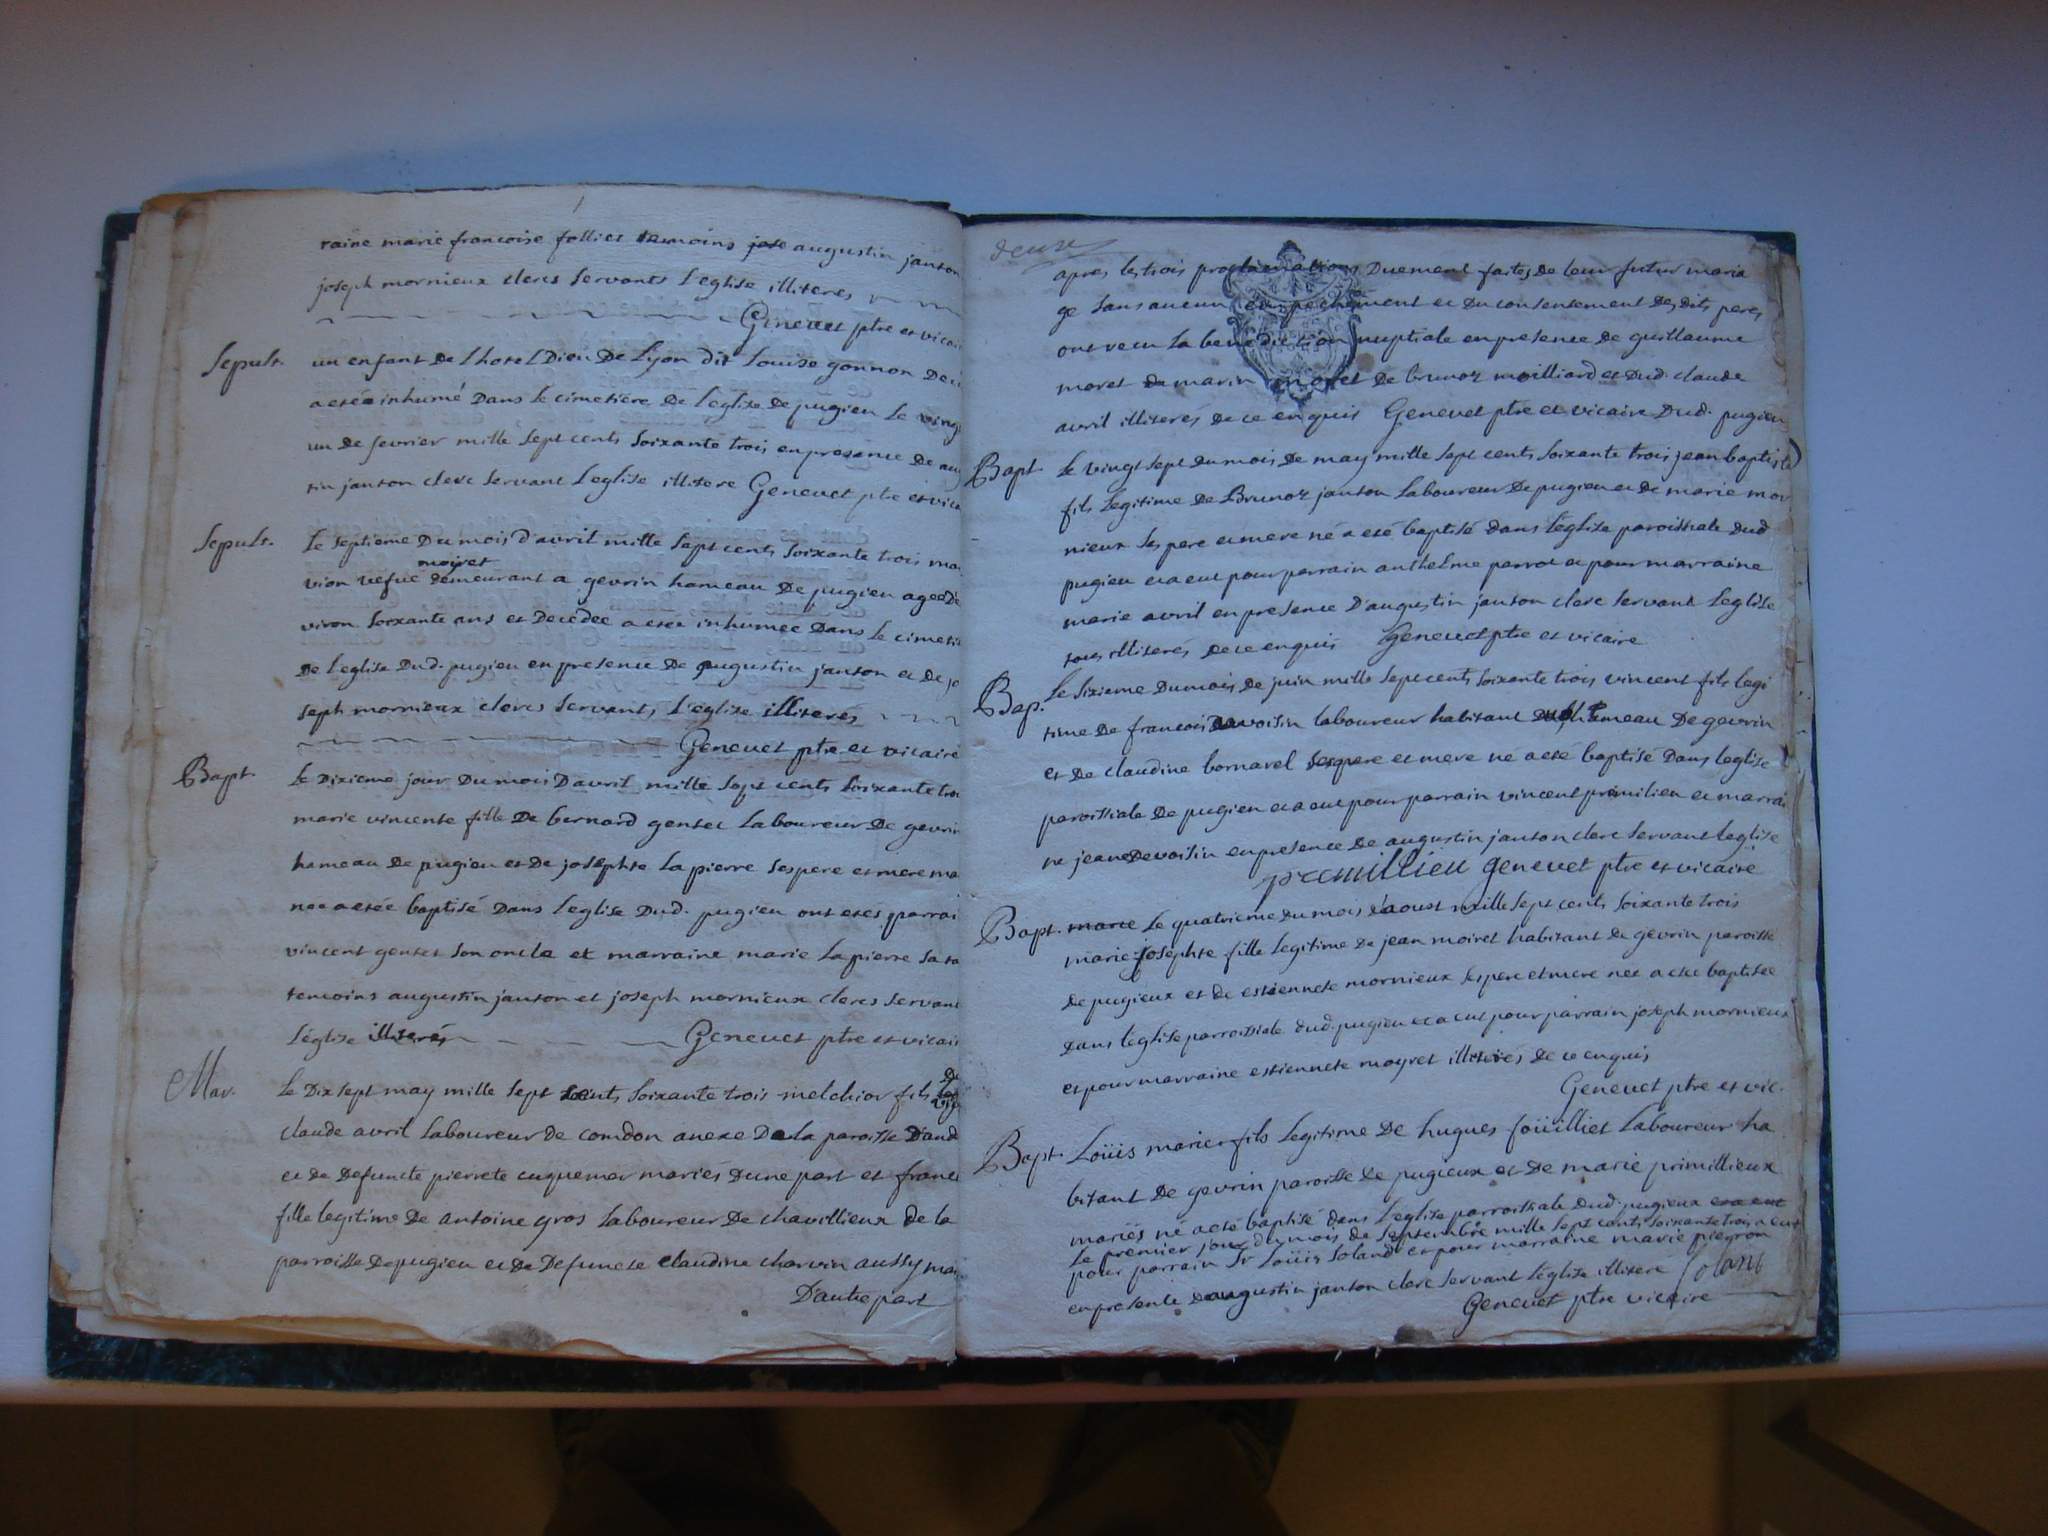 raine marie francoise follier temoins jose augustin janton
joseph mornieux clercs servants l'eglise illiteres
Genevet ptre et vicai
Sepult. un enfant de l'hotel Dieu De Lyon dit Louise gonnon De
a etée inhumé Dans le cimetière De l'eglise De pugieu Le vingt
un de fevrier mille sept cents soixante trois en presence De au
tin janton clerc servant l'eglise illitere Genevet ptre et vica
Sepult. Le septieme Du mois d'avril mille sept cents soixante trois ma
moiret
vion vefue demeurant a gevrin hameau De pugieu agee De
viron soixante ans et Decedée a etée inhumée Dans le cimeti
De l'eglise Dud. pugieu en presence De augustin janton et de jo
seph mornieux clercs servants l'eglise illiteres
Genevet ptre et vicaire
Bapt. Le Dixieme jour Du mois D'avril mille sept cents soixante troi
marie vincente fille De bernard gentet Laboureur De gevrin
hameau De pugieu et De josephte La pierre ses pere et mere ma
nee a etée baptisé Dans l'eglise Dud. pugieu ont etes parrai
vincent gentet son oncle et marraine marie La pierre sa ta
temoins augustin janton et joseph mornieux clercs servant
l'église illiterés Genevet ptre et vicair
De
Mar. Le Dix sept may mille sept cents soixante trois melchior fils
claude avril Laboureur De comdon anexe De la paroisse D'and
et de Defuncte pierrete cuquemer mariés d'une part et franc
fille legitime De antoine gros Laboureur De chavillieux de la
parroisse De pugieu et De Defuncte claudine charvin aussy mar
D'autre part
deuxe
apres les trois proclamations Duement faites de leur futur maria
ge sans aucun empechement et Du consentement Des dits peres
ont recu La benediction nuptiale en presence de guillaume
moret de marin moret De brunoz moilliard et Dud. claude
avril illiterés de ce enquis Genevet ptre et vicaire Dud. pugieu
Bapt. Le vingt sept du mois De may mille sept cents soixante trois jean baptiste
fils legitime De Brunoz janton Laboureur De pugieu et de marie mor
nieux ses pere et mere né a eté baptisé dans l'église paroissiale Dud
pugieu et a eut pour parrain anthelme parrot et pour marraine
marie avril en presence D'augustin janton clerc servant l'eglise
tous illiterés de ce enquis Genevet ptre et vicaire
Bap. Le sixieme Du mois De juin mille sept cents soixante trois vincent fils legi
time De francois Devoisin laboureur habitant hameau De gevrin
et De claudine bornarel ses pere et mere né a eté baptisé Dans l'eglise
paroissiale De pugieu et a eut pour parrain vincent primilieu et marrai
ne jeanne Devoisin en presence De augustin janton clerc servant l'eglise
premillieu Genevet ptre et vicaire
Bapt. marie Le quatrieme du mois d'aoust mille sept cents soixante trois
marie josephte fille legitime De jean moiret habitant De gevrin paroisse
De pugieux et de estiennete mornieux ses pere et mere née a été baptisée
Dans l'eglise parroissiale dud. pugieu et a eut pour parrain joseph mornieux
et pour marraine estiennete moyret illiterés de ce enquis
Genevet ptre et vic.
Bapt. Loüis marie fils legitime De hugues foüilliet Laboureur ha
bitant De gevrin paroisse De pugieux et De marie primillieux
mariés né a eté baptisé dans l'eglise parroissiale Dud. pugieux et a eut
Le premier jour du mois de septembre mille sept cents soixante trois a eut
pour parrain Sr Loüis Soland et pour marraine marie pierron
en presence D'augustin janton clerc servant l'église illitere Solant
Genevet ptre vicaire